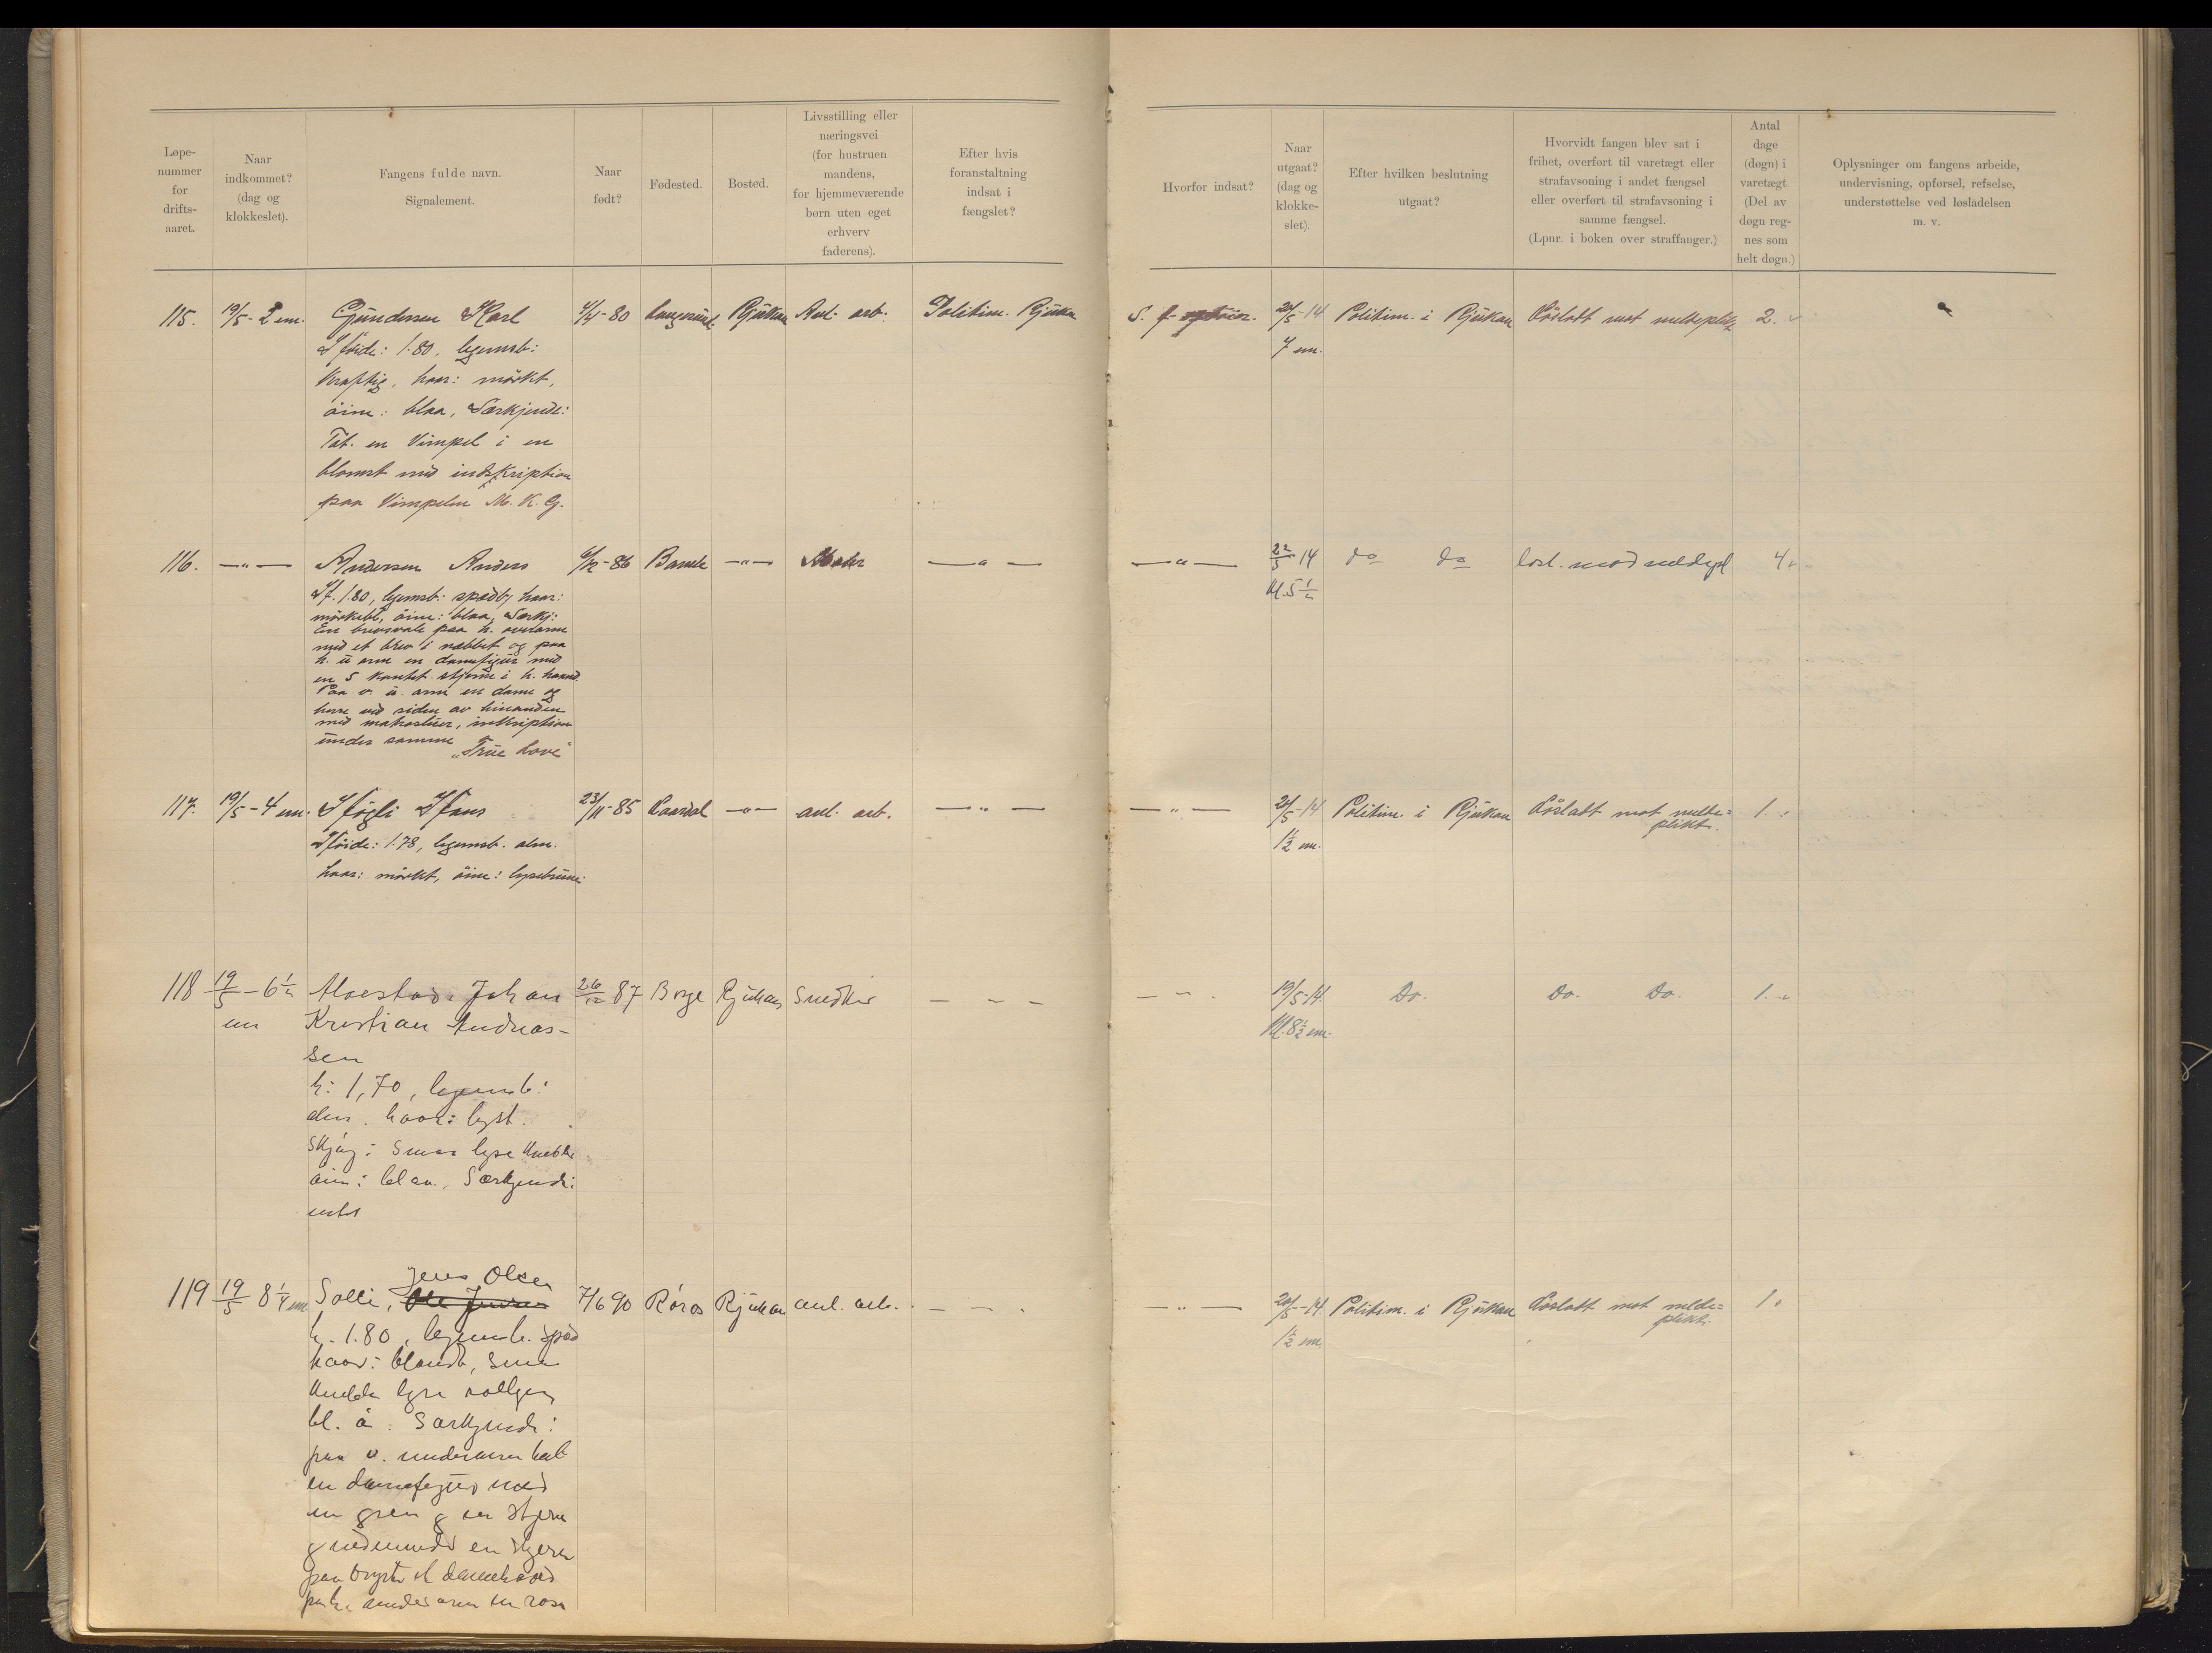 Løpe-
nummer
for
drifts-
aaret.
Naar
indkommet?
(dag og
klokkeslet).
Fangens fulde navn.
Signalement.
Naar
født?
Fødested.
Bosted.
Livsstilling eller
næringsvei
(for hustruen
mandens,
for hjemmeværende
børn uten eget
erhverv
faderens).
Efter hvis
foranstaltning
indsat i
fængslet?
Hvorfor indsat?
Naar
utgaat?
(dag og
klokke-
slet).
Efter hvilken beslutning
utgaat?
Hvorvidt fangen blev sat i
frihet, overført til varetægt eller
strafavsoning i andet fængsel
eller overført til strafavsoning i
samme fængsel.
(Lpnr. i boken over straffanger.)
Antal
dage
(døgn) i
varetægt.
(Del av
døgn reg-
nes som
helt døgn.)
Oplysninger om fangens arbeide,
undervisning, opførsel, refselse,
understøttelse ved løsladelsen
m. v.
115. 19/5 - 2 em. Gundersen Karl 4/4-80 Langesund Rjukan Anl. arb. Politim. Rjukan S. f. 20/5-14 Politim. i Rjukan Løslatt mot meldeplikt 2.
7 em.
Høide: 1.80, legemsb:
Kraftig, haar: mørkt,
øine: blaa, Særkjende:
Tat. en Vimpel i en
blomst med indskription
paa Vimpelen M. K. G.
116. —"— Andersen Anders 6/12-86 Bamle —"— —"— —"— 22/5-14 do do losl. mod 4
Kl. 5 1/2
H. 1.80, legemsb: spædb, haar:
mørkebl, øine: blaa, Særkj:
En brevsvale paa h. overarm
med et brev i næbbet og paa
h. u arm en damefigur med
en 5 kantet stjerne i h. haand.
Paa v. u. arm en dame og
herre ved siden av hinanden
med inskription
under samme „True Love"
117. 19/5 - 4 em. Høgli Hans 23/11-85 Laardal —"— anl. arb. —"— —"— 20/5-14 Politim. i Rjukan Løslatt mot melde=
plikt. 1.
1 1/2 em.
Høide: 1.78, legemsb. alm.
haar: mørkt, øine: lysebrune.
118 19/5 - 6 1/2 em Johan 26/12 87 Borge Rjukan Snedker — — — — " — 19/5-14. Do. Do. Do. 1.
Kl. 8 1/2 em.
Kristian Andreas-
sen
h: 1,70, legemsb:
alm. haar: lyst.
Skjæg: Smaa lyse Knebler
øine: blaa, Særkjende:
intet
119 19/5 8 1/4 em Solli, Jens Olsen Ole Jensen 7/6 90 Røros Rjukan anl. arb. — — — —"— 20/5-14. Politim. i Rjukan Løslatt mot melde=
plikt. 1.
1 1/2 em.
h. 1.80, legemsb. spæd
haar: blondt, smaa
Knebler lyse
bl. ø. Særkjende:
paa v. underarm tat
en damefigur med
en gren og en stjerne
og nedenunder en stjerne
paa bryste et damehoved
paa h. underarm en rose